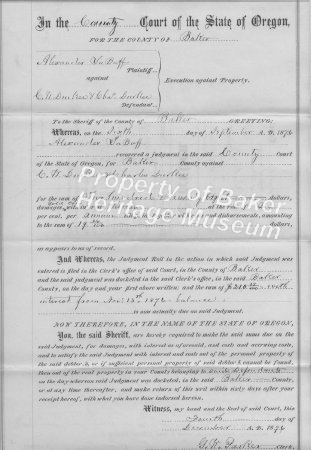 In the County Court of the State of Oregon,
FOR THE COUNTY OF Baker
Alexander LaBuff
Plaintiff
against
Execution against Property.
C. W. Durkee & Chas. Durkee
Defendant
To the Sheriff of the County of Baker GREETING:
Whereas, on the Sixth day of September A. D. 1876
Alexander LaBuff
recovered a judgment in the said County Court
of the State of Oregon, for Baker County against
C. W. Durkee & Charles Durkee
for the sum of dollars,
per cent. per Annum costs and disbursements, amounting
to the sum of 19 dollars,
Property of Baker
Heritage Museum
as appears to us of record.
And Whereas, the Judgment Roll in the action in which said judgment was
entered is filed in the Clerk's office in said Court, in the County of Baker
and the said judgment was docketed in the said Clerk's office, in the said Baker
County, on the day and year first above written; and the sum of $210 with
interest from Nov 13th 1876 balance
is now actually due on said Judgment.
NOW THEREFORE, IN THE NAME OF THE STATE OF OREGON,
You, the said Sheriff, are hereby required to make the said sums due on the
said Judgment, for damages, with interest as aforesaid, and costs and accruing costs,
and to satisfy the said Judgment with interest and costs out of the personal property
of the said debtor s, or if sufficient personal property of said debtor s cannot be found,
then out of the real property in your County belonging to
on the day whereon said Judgment was docketed, in the said Baker County,
or at any time thereafter, and make return of this writ within sixty days after your
receipt hereof, with what you have done indorsed hereon.
Witness, my hand and the Seal of said Court, this
Fourth day of
December 1876
Clerk